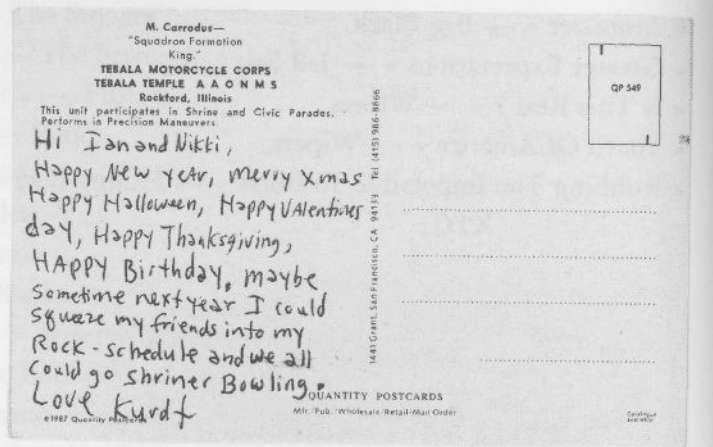 M. Carrodus—
"Squadron Formation
King."
TEBALA MOTORCYCLE CORPS
TEBALA TEMPLE A A O N M S
Rockford, Illinois
This unit participates in Shrine and Civic Parades.
Performs in Precision Maneuvers.
Hi Ian and Nikki,
Happy New YeAr, merry Xmas
Happy Halloween, Happy VAlentines
day, Happy Thanksgiving,
HAppy Birthday, maybe
Sometime next year I could
Squeeze my friends into my
Rock-schedule and we all
could go Shriner Bowling.
Love Kurdt
©1987 Quantity Postcards
1441 Grant, San Francisco, CA 94133 Tel. (415) 986-8866
QP 549
QUANTITY POSTCARDS
Mfr./Pub./Wholesale/Retail-Mail Order